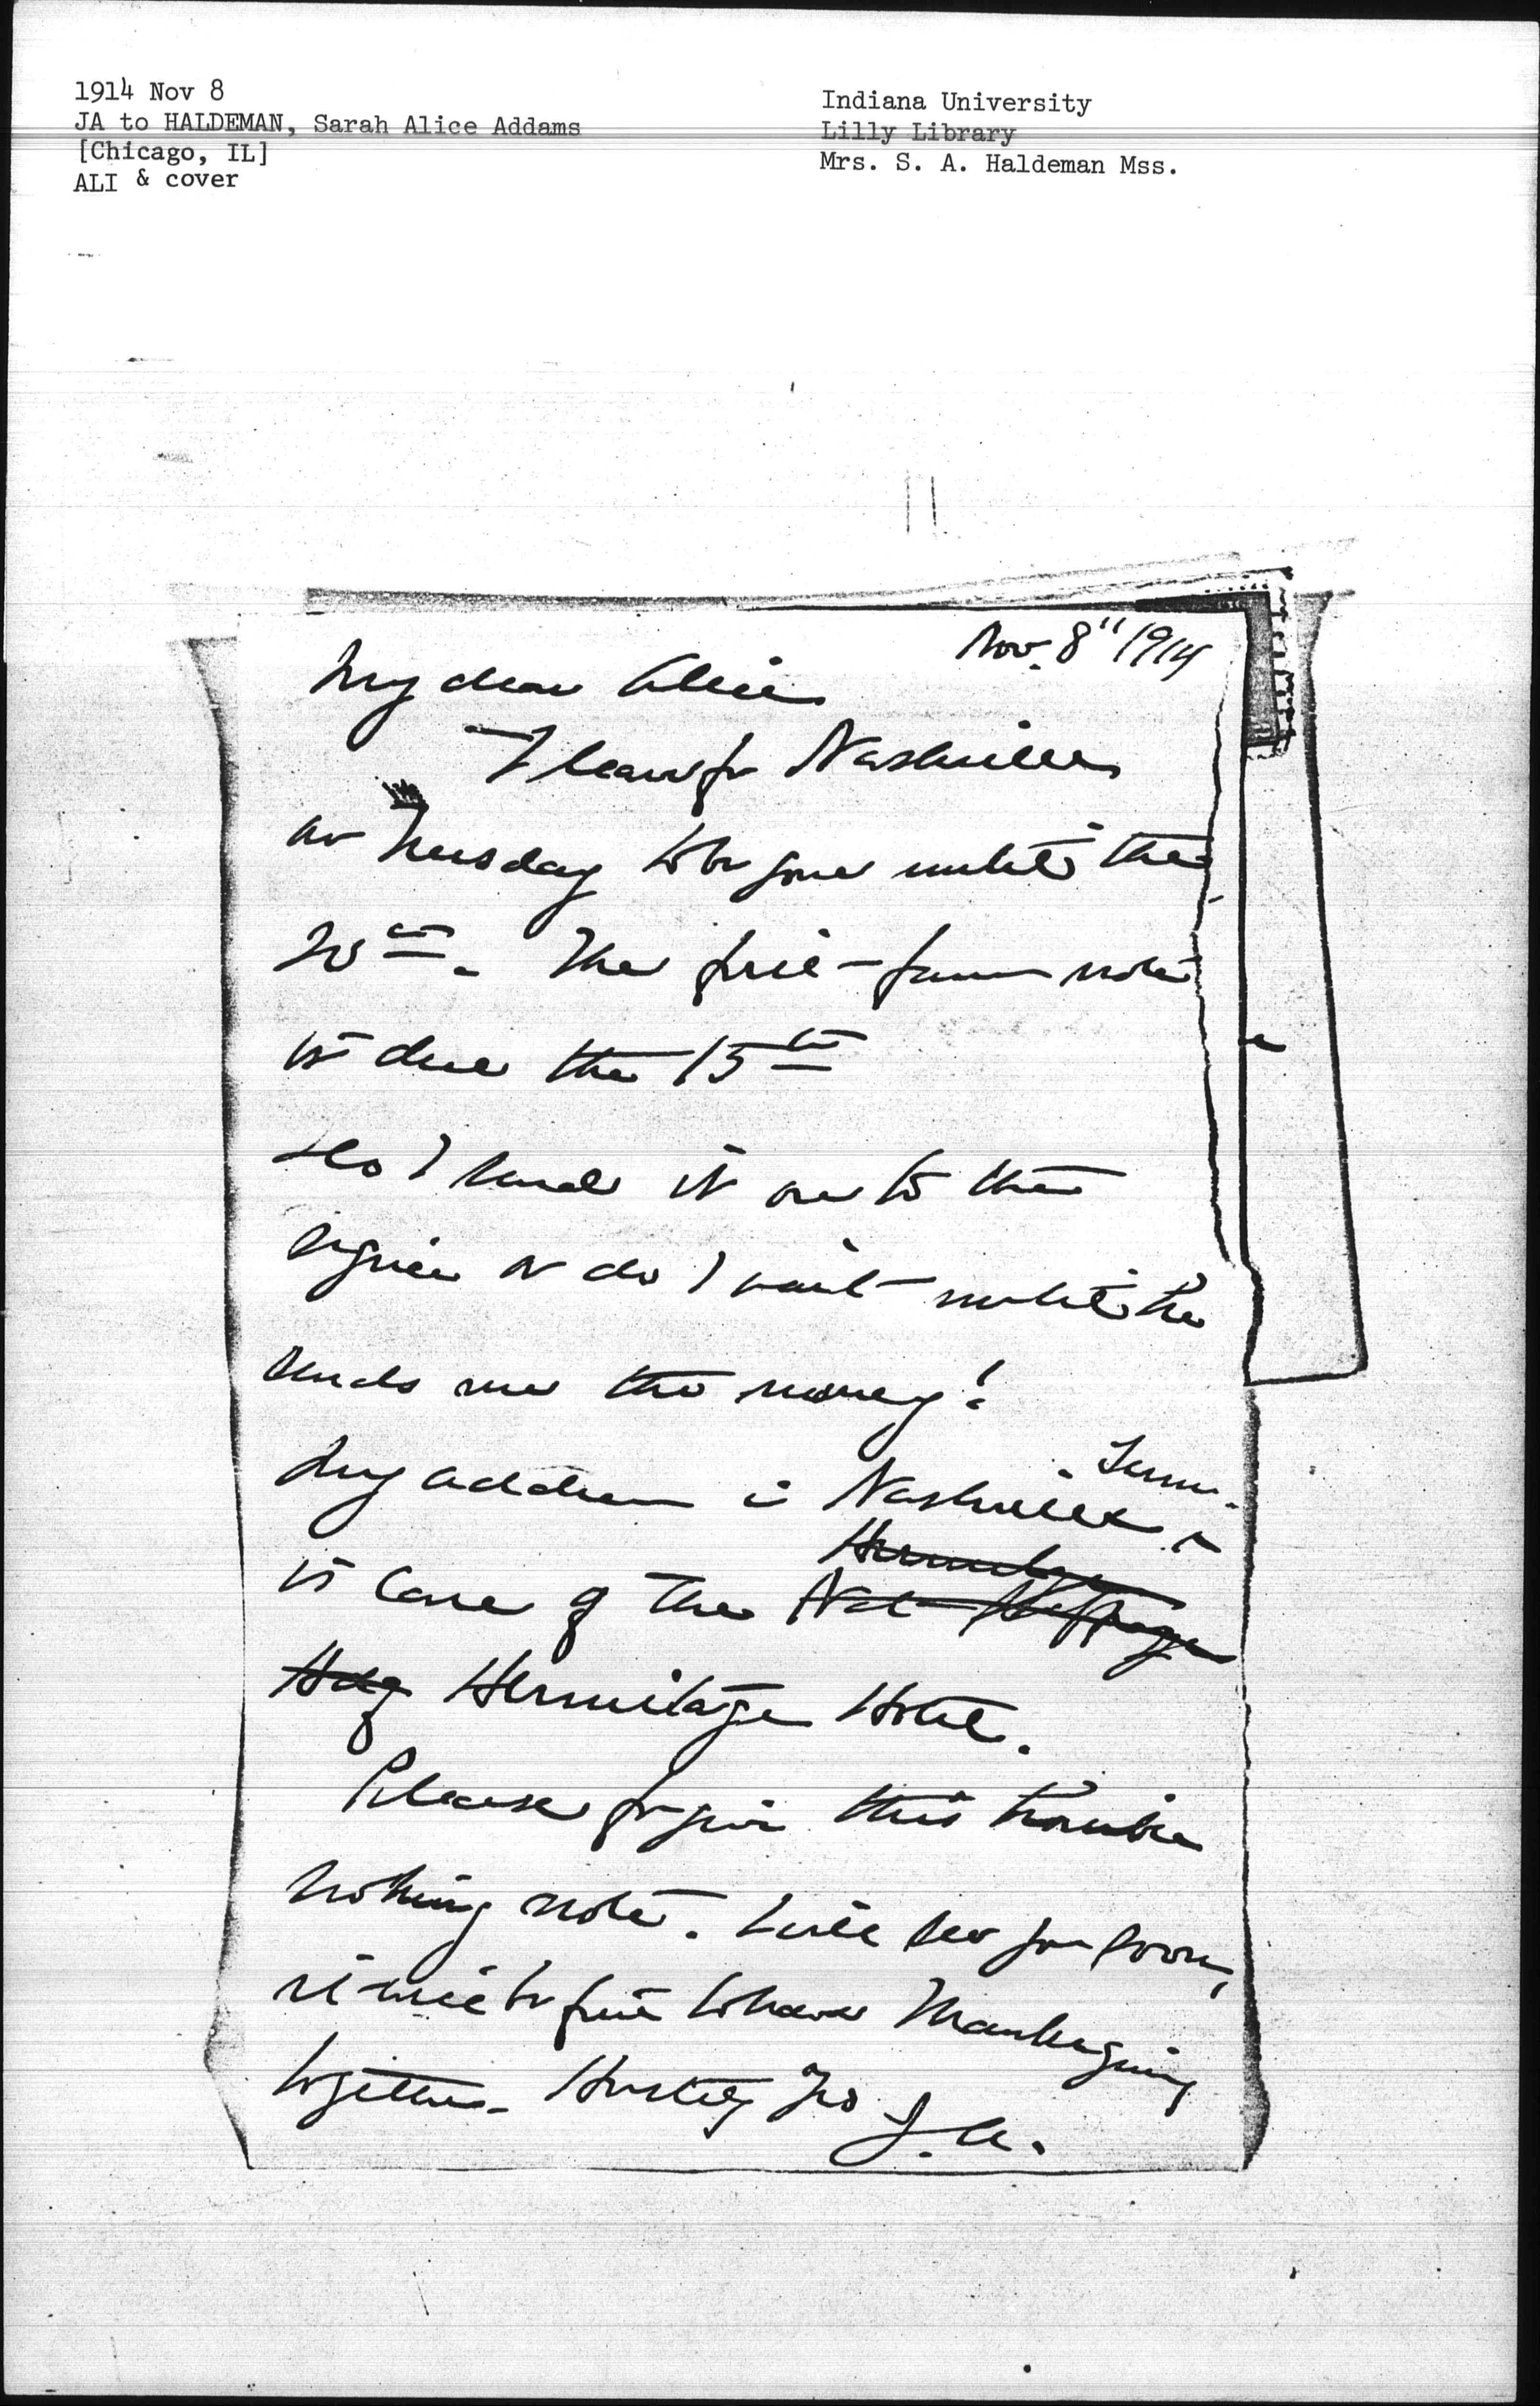 1914 Nov 8
JA to HALDEMAN, Sarah Alice Addams
[Chicago, IL]
ALI & cover
Indiana University
Lilly Library
Mrs. S. A. Haldeman Mss.
Nov. 8" 1914
My dear Alice
I leave for Nashville
on Tuesday to be gone until the
20th. The farm note
is due the 15th
Do I send it on to the
signer or do I wait until he
sends me the money?
My address in Nashville Tenn.
is care of the Hermitage Nat Suffrage
Hdq Hermitage Hotel.
Please forgive this
nothing note. Will see you soon,
it will be fine to have Thanksgiving
together. Hastily yrs J.A.